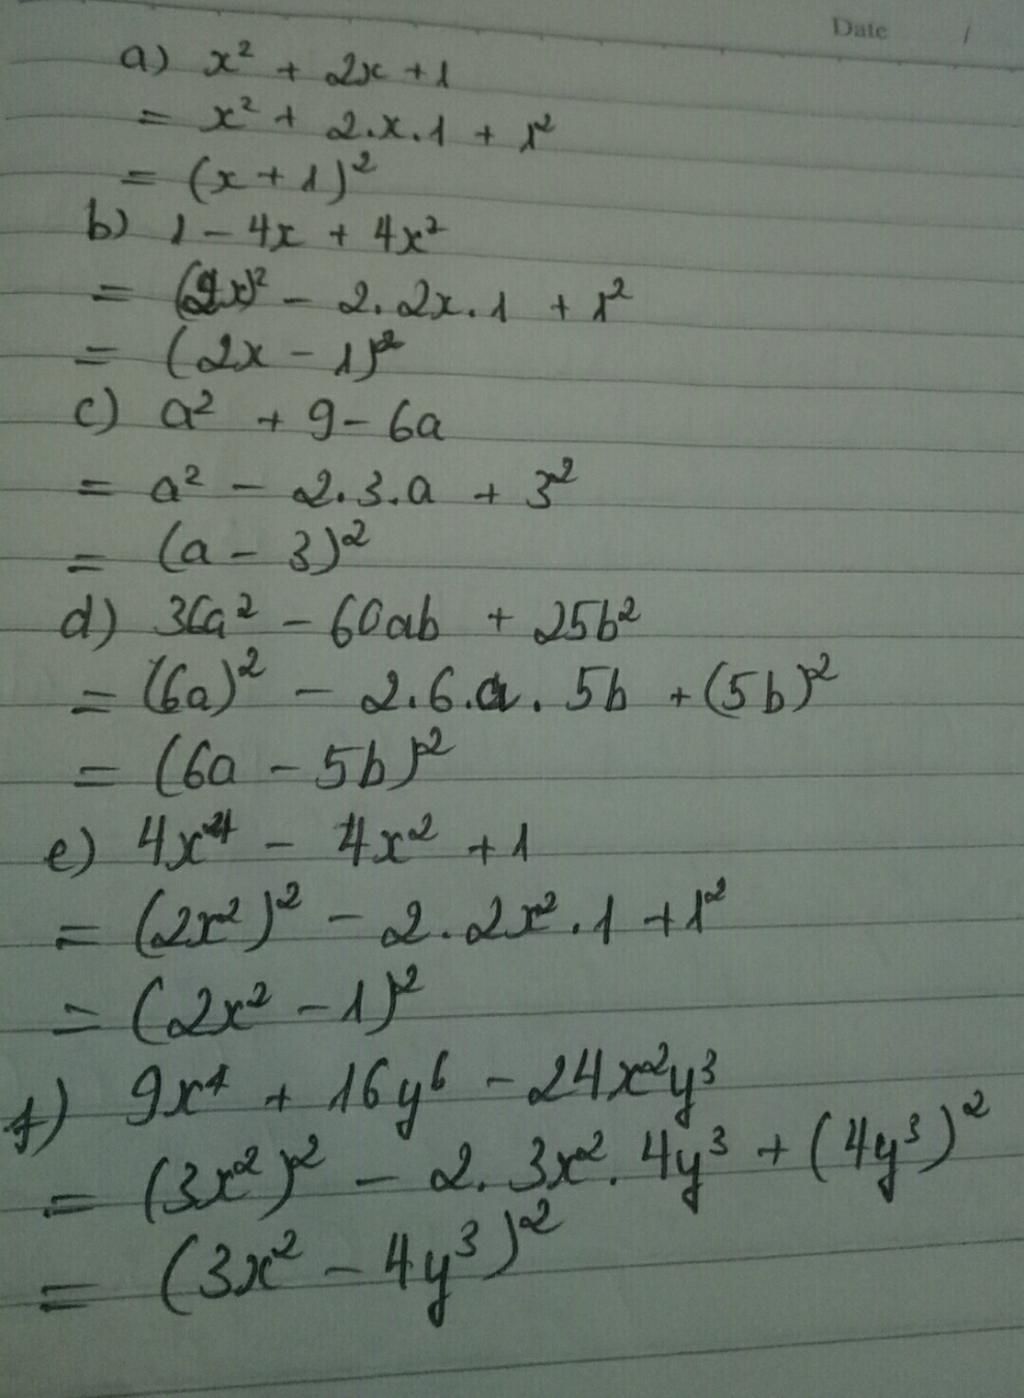 Date /
a) x² + 2x + 1
= x² + 2.x.1 + 1²
= (x + 1)²
b) 1 - 4x + 4x²
= (2x)² - 2.2x.1 + 1²
= (2x - 1)²
c) a² + 9 - 6a
= a² - 2.3.a + 3²
= (a - 3)²
d) 36a² - 60ab + 25b²
= (6a)² - 2.6.a.5b + (5b)²
= (6a - 5b)²
e) 4x⁴ - 4x² + 1
= (2x²)² - 2.2x².1 + 1²
= (2x² - 1)²
f) 9x⁴ + 16y⁶ - 24x²y³
= (3x²)² - 2.3x².4y³ + (4y³)²
= (3x² - 4y³)²